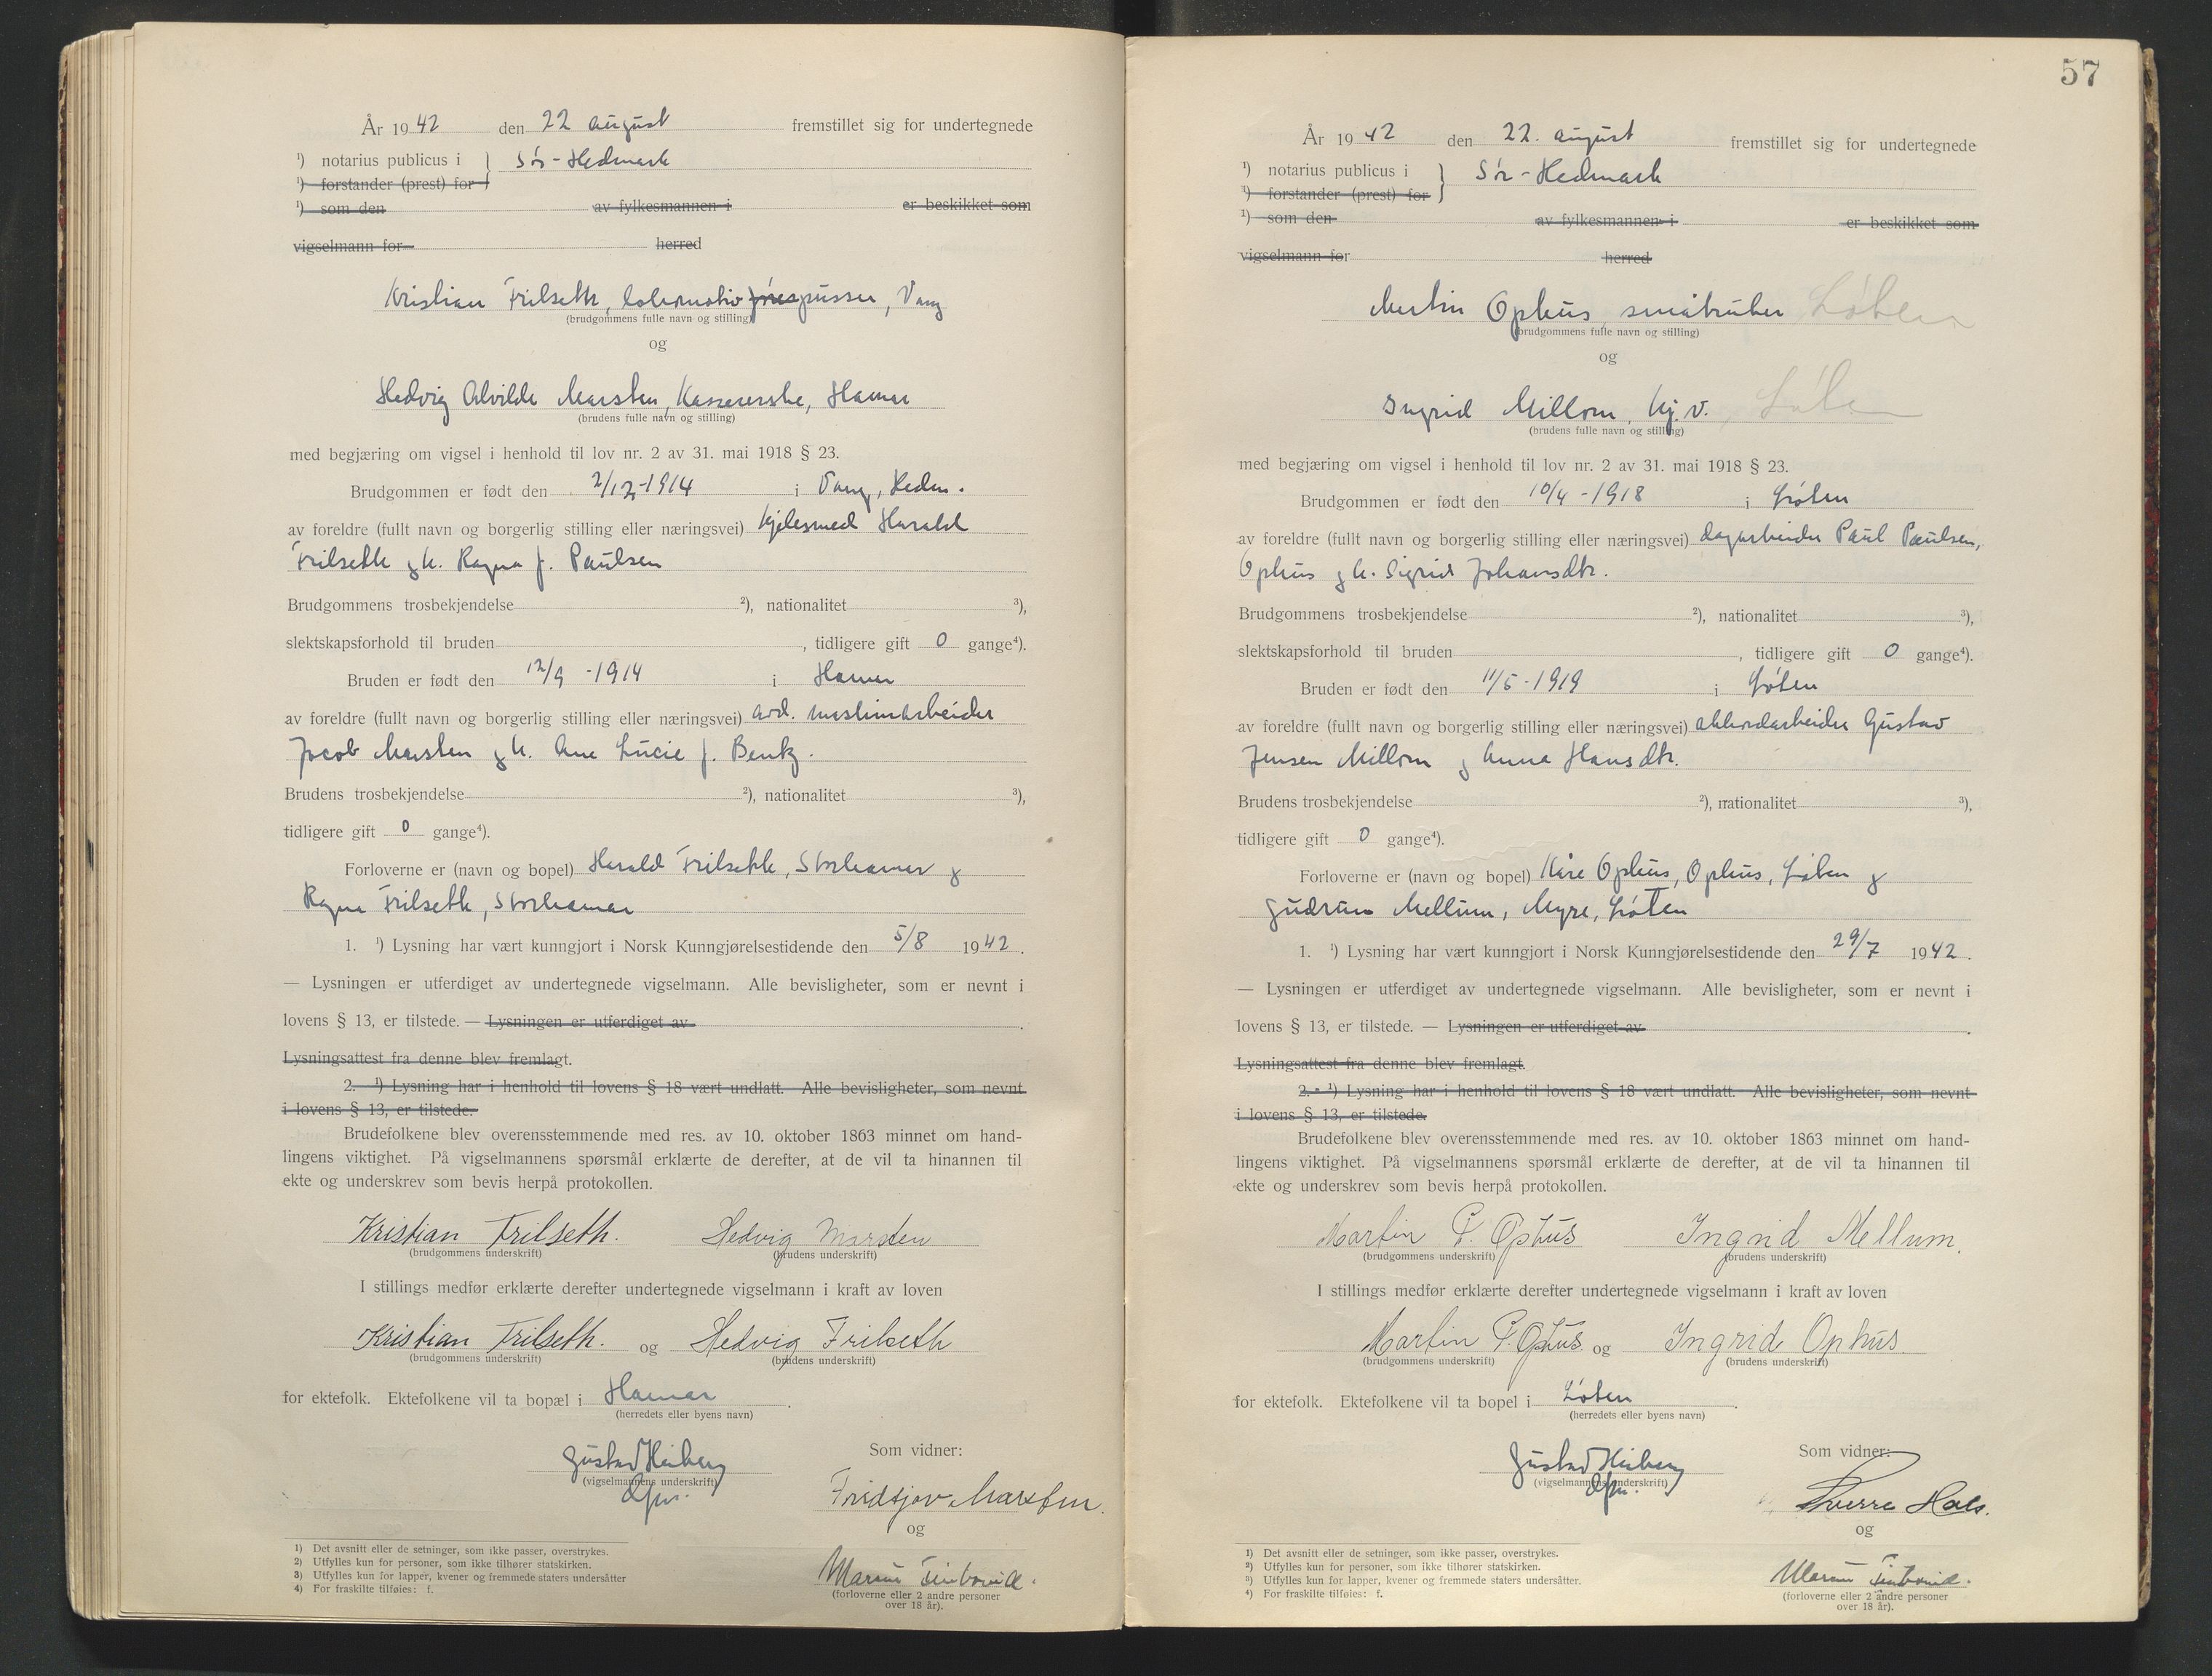 År 1942 den 22 august fremstillet sig for undertegnede
¹) notarius publicus i } Sør-Hedmark
¹) forstander (prest) for
¹) som den av fylkesmannen i er beskikket som
vigselmann for herred
Kristian Frilseth, lokomotivpusser, Vang
(brudgommens fulle navn og stilling)
og
Hedvig Alvilde Marsten, Kassererske, Hamar
(brudens fulle navn og stilling)
med begjæring om vigsel i henhold til lov nr. 2 av 31. mai 1918 § 23.
Brudgommen er født den 2/12-1914 i Vang, Hedm.
av foreldre (fullt navn og borgerlig stilling eller næringsvei) kjelesmed Harald
Frilseth og h. Ragna f. Paulsen
Brudgommens trosbekjendelse ²), nationalitet ³),
slektskapsforhold til bruden , tidligere gift 0 gange⁴).
Bruden er født den 12/9 -1914 i Hamar
av foreldre (fullt navn og borgerlig stilling eller næringsvei) avd. maskinarbeider
Jacob Marsten og h. Ane Lucie f. Bentz.
Brudens trosbekjendelse ²), nationalitet ³),
tidligere gift 0 gange⁴).
Forloverne er (navn og bopel) Harald Frilseth, Storhamar og
Ragna Frilseth, Storhamar
1. ¹) Lysning har vært kunngjort i Norsk Kunngjørelsestidende den 5/8 1942.
— Lysningen er utferdiget av undertegnede vigselmann. Alle bevisligheter, som er nevnt i
lovens § 13, er tilstede. — Lysningen er utferdiget av .
Lysningsattest fra denne blev fremlagt.
2. ¹) Lysning har i henhold til lovens § 18 vært undlatt. Alle bevisligheter, som nevnt
i lovens § 13, er tilstede.
Brudefolkene blev overensstemmende med res. av 10. oktober 1863 minnet om hand-
lingens viktighet. På vigselmannens spørsmål erklærte de derefter, at de vil ta hinannen til
ekte og underskrev som bevis herpå protokollen.
Kristian Frilseth. Hedvig Marsten
(brudgommens underskrift) (brudens underskrift)
I stillings medfør erklærte derefter undertegnede vigselmann i kraft av loven
Kristian Frilseth. og Hedvig Frilseth
(brudgommens underskrift) (brudens underskrift)
for ektefolk. Ektefolkene vil ta bopæl i Hamar.
(herredets eller byens navn)
Som vidner:
Gustav Heiberg
(vigselmannens underskrift)
Fridtjov Marsten.
og
(forloverne eller 2 andre personer
over 18 år).
1) Det avsnitt eller de setninger, som ikke passer, overstrykes.
2) Utfylles kun for personer, som ikke tilhører statskirken.
3) Utfylles kun for lapper, kvener og fremmede staters undersåtter
4) For fraskilte tilføies: f.
57
År 1942 den 22. august fremstillet sig for undertegnede
¹) notarius publicus i } Sør-Hedmark
¹) forstander (prest) for
¹) som den av fylkesmannen i er beskikket som
vigselmann for herred
Martin Ophus, småbruker Løten
(brudgommens fulle navn og stilling)
og
Ingrid Millom, hj.v. Løten
(brudens fulle navn og stilling)
med begjæring om vigsel i henhold til lov nr. 2 av 31. mai 1918 § 23.
Brudgommen er født den 10/4 -1918 i Løten
av foreldre (fullt navn og borgerlig stilling eller næringsvei) dagarbeider Paul Paulsen,
Ophus og h. Sigrid Johansdtr.
Brudgommens trosbekjendelse ²), nationalitet ³),
slektskapsforhold til bruden , tidligere gift 0 gange⁴).
Bruden er født den 11/5-1919 i Løten
av foreldre (fullt navn og borgerlig stilling eller næringsvei) akkordarbeider Gustav
Jensen Millom og Anna Hansdtr.
Brudens trosbekjendelse ²), nationalitet ³),
tidligere gift 0 gange⁴).
Forloverne er (navn og bopel) Kåre Ophus, Ophus, Løten og
Gudrun Mellum, Myre, Løten
1. ¹) Lysning har vært kunngjort i Norsk Kunngjørelsestidende den 29/7 1942.
— Lysningen er utferdiget av undertegnede vigselmann. Alle bevisligheter, som er nevnt i
lovens § 13, er tilstede. — Lysningen er utferdiget av .
Lysningsattest fra denne blev fremlagt.
2. ¹) Lysning har i henhold til lovens § 18 vært undlatt. Alle bevisligheter, som nevnt
i lovens § 13, er tilstede.
Brudefolkene blev overensstemmende med res. av 10. oktober 1863 minnet om hand-
lingens viktighet. På vigselmannens spørsmål erklærte de derefter, at de vil ta hinannen til
ekte og underskrev som bevis herpå protokollen.
Martin P. Ophus Ingrid Mellum.
(brudgommens underskrift) (brudens underskrift)
I stillings medfør erklærte derefter undertegnede vigselmann i kraft av loven
Martin P. Ophus. og Ingrid Ophus
(brudgommens underskrift) (brudens underskrift)
for ektefolk. Ektefolkene vil ta bopel i Løten.
(herredets eller byens navn)
Som vidner:
Gustav Heiberg
(vigselmannens underskrift)
Sverre Hals.
og
(forloverne eller 2 andre personer
over 18 år).
1) Det avsnitt eller de setninger, som ikke passer, overstrykes.
2) Utfylles kun for personer, som ikke tilhører statskirken.
3) Utfylles kun for lapper, kvener og fremmede staters undersåtter.
4) For fraskilte tilføies: f.